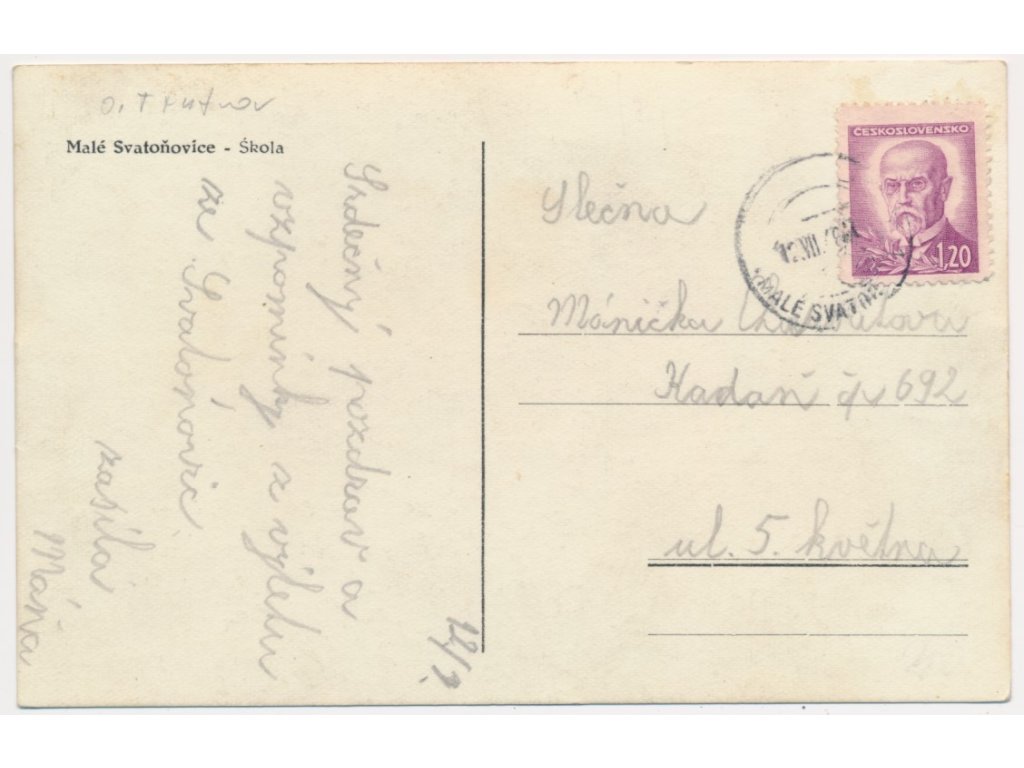 o. Trutnov
Malé Svatoňovice - Škola
Srdečný pozdrav a
vzpomínky z výletu
ze Svatoňovic.
zasílá
Máňa
ČESKOSLOVENSKO
1,20
MALÉ SVATOŇ
Slečna
Mánička
Kadaň čp 692
ul. 5. května